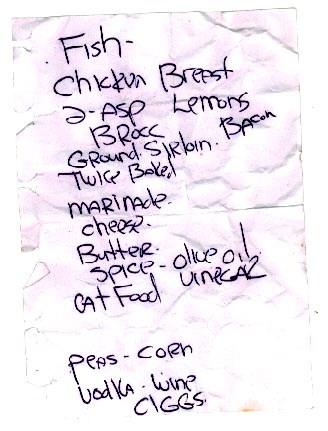 Fish-
Chickun Breest
2-Asp Lemons
BROCC BACON
GROUND SIRLOIN.
Twice Baked
MARINADE.
cheese.
BUTTER.
SPICE - Olive Oil
CAT Food VINEGAR
PEAS - CORN
Vodka - Wine
CIGGS.